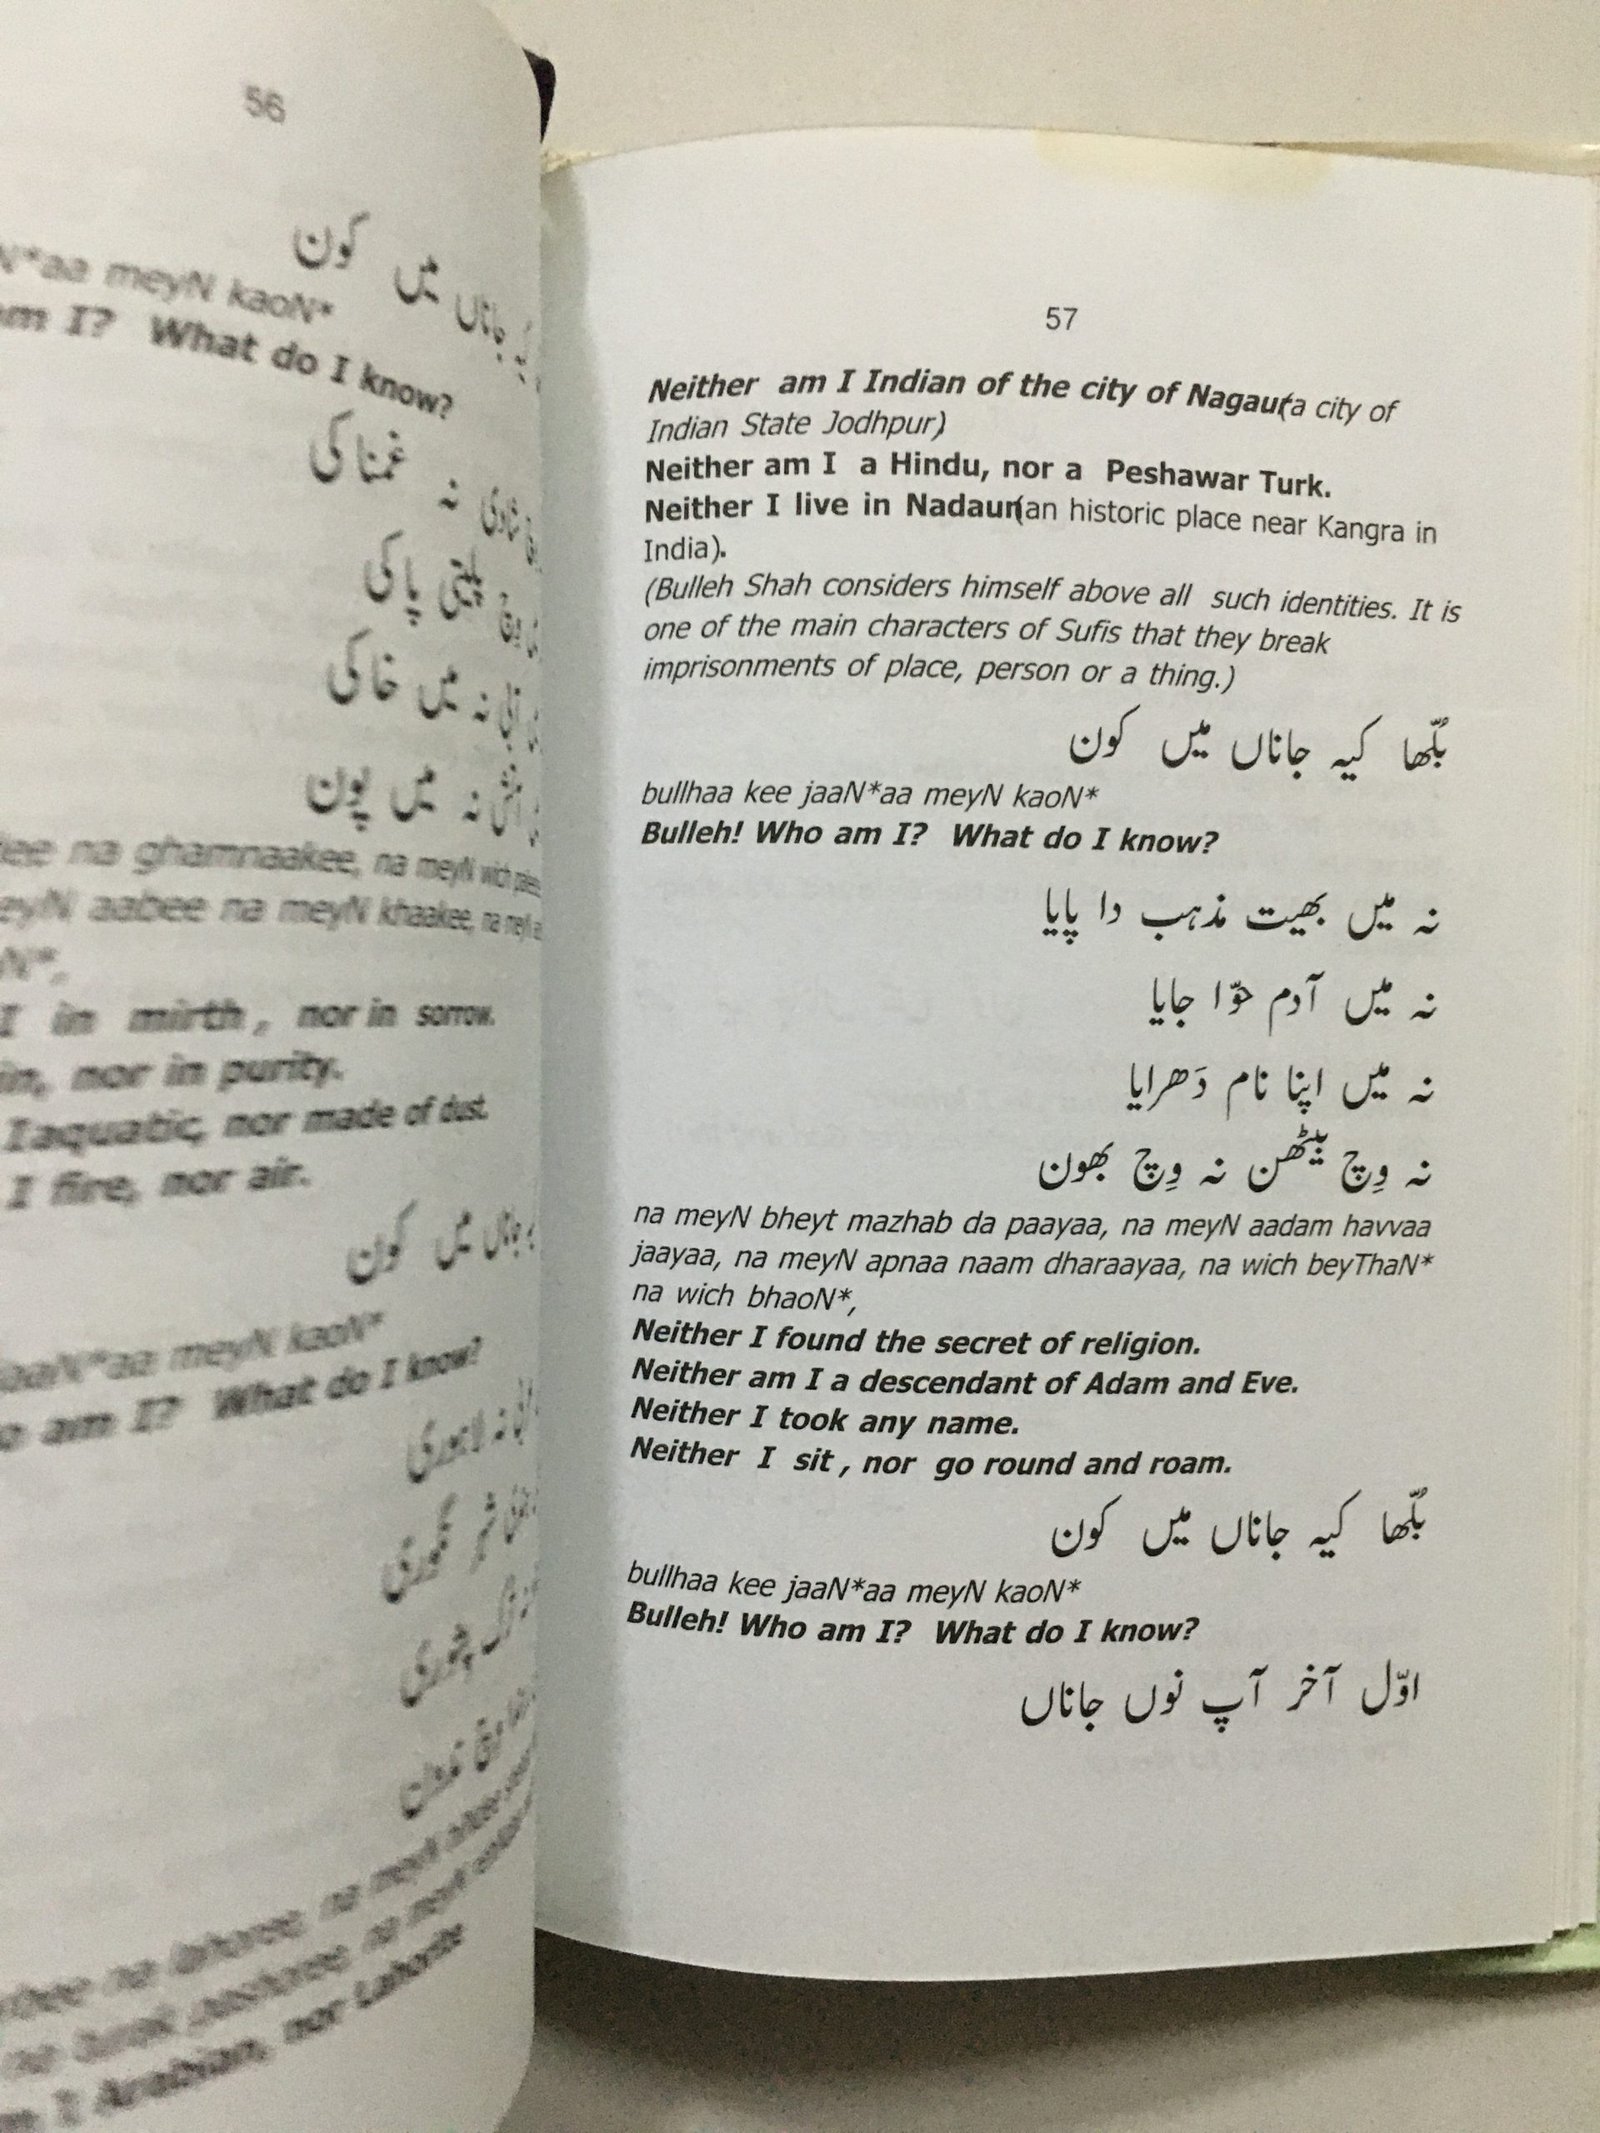 56
کیہ جاناں میں کون
N*aa meyN kaoN*
am I? What do I know?
شادی نہ غمناکی
پلیتی پاکی
آبی نہ میں خاکی
آتش نہ میں پون
ee na ghamnaakee, na meyN wich
eyN aabee na meyN khaakee, na
N*,
I in mirth, nor in sorrow.
in, nor in purity.
I aquatic, nor made of dust.
I fire, nor air.
جاناں میں کون
jaaN*aa meyN kaoN*
o am I? What do I know?
نہ لاہوری
شہر
پشوری
na lahoree, na meyN
na turak pashoree, na meyN
I Arabian, nor Lahorite
57
Neither am I Indian of the city of Nagaur(a city of
Indian State Jodhpur)
Neither am I a Hindu, nor a Peshawar Turk.
Neither I live in Nadaun(an historic place near Kangra in
India).
(Bulleh Shah considers himself above all such identities. It is
one of the main characters of Sufis that they break
imprisonments of place, person or a thing.)
بُلّھا کیہ جاناں میں کون
bullhaa kee jaaN*aa meyN kaoN*
Bulleh! Who am I? What do I know?
نہ میں بھیت مذہب دا پایا
نہ میں آدم حوّا جایا
نہ میں اپنا نام دَھرایا
نہ وِچ بیٹھن نہ وِچ بھون
na meyN bheyt mazhab da paayaa, na meyN aadam havvaa
jaayaa, na meyN apnaa naam dharaayaa, na wich beyThaN*
na wich bhaoN*,
Neither I found the secret of religion.
Neither am I a descendant of Adam and Eve.
Neither I took any name.
Neither I sit , nor go round and roam.
بُلّھا کیہ جاناں میں کون
bullhaa kee jaaN*aa meyN kaoN*
Bulleh! Who am I? What do I know?
اوّل آخر آپ نوں جاناں